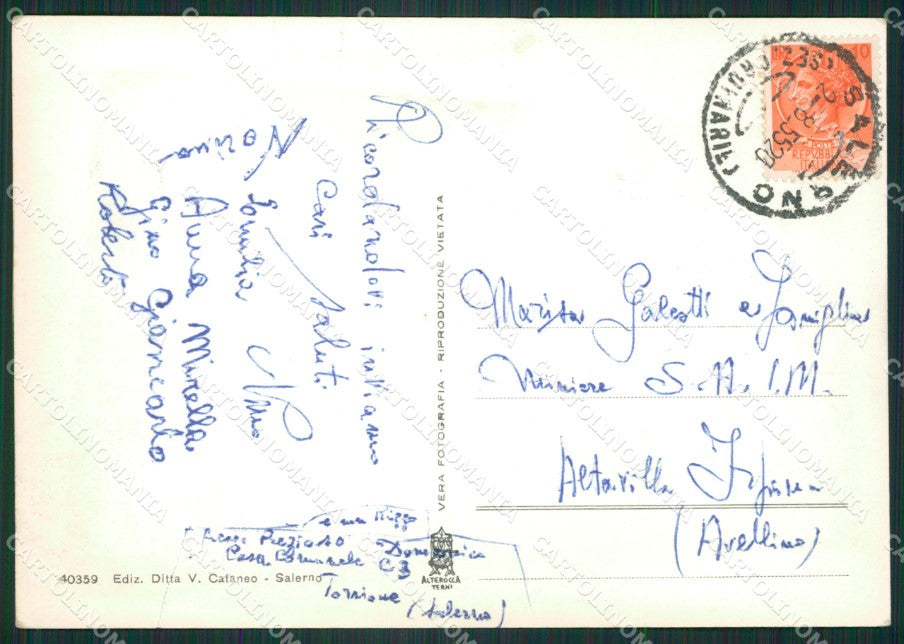 Ricordandovi inviamo
cari saluti
Emilia Nino
Anna Mirella
Gino Giancarlo
Roberto
Prezioso Domenica
Casa Comunale C3
Torrione
(Salerno)
40359 Ediz. Ditta V. Cafaneo - Salerno
VERA FOTOGRAFIA - RIPRODUZIONE VIETATA
ALTEROCCA
TERNI
SALERNO
2-8-55 20
10
REPUBBLICA
ITALIANA
Marisa Galeotti e famiglia
Miniere S.A.I.M.
Altavilla Irpina
(Avellino)
CARTOLINOMANIA